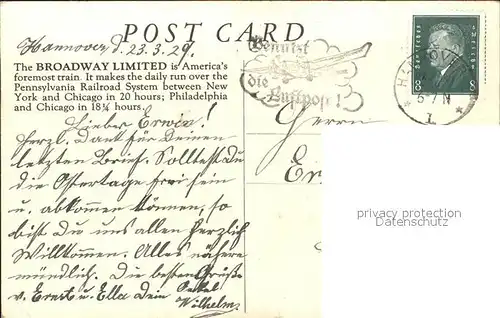 POST CARD
Hannover d. 23.3.29.
Benutzt
die
Luftpost!
The BROADWAY LIMITED is America's
foremost train. It makes the daily run over the
Pennsylvania Railroad System between New
York and Chicago in 20 hours; Philadelphia
and Chicago in 18¾ hours.
Deutsches Reich
8 8
5-7 N
Lieber Erwin!
Herzl. Dank für Deinen
letzten Brief. Solltest Du
die Ostertage frei sein
u. abkommen können, so
bist Du uns allen herzlich
Willkommen. Alles nähere
mündlich. Die besten Grüße
v. Ernst u. Ella Dein Onkel
Wilhelm
Herrn
privacy protection
Datenschutz